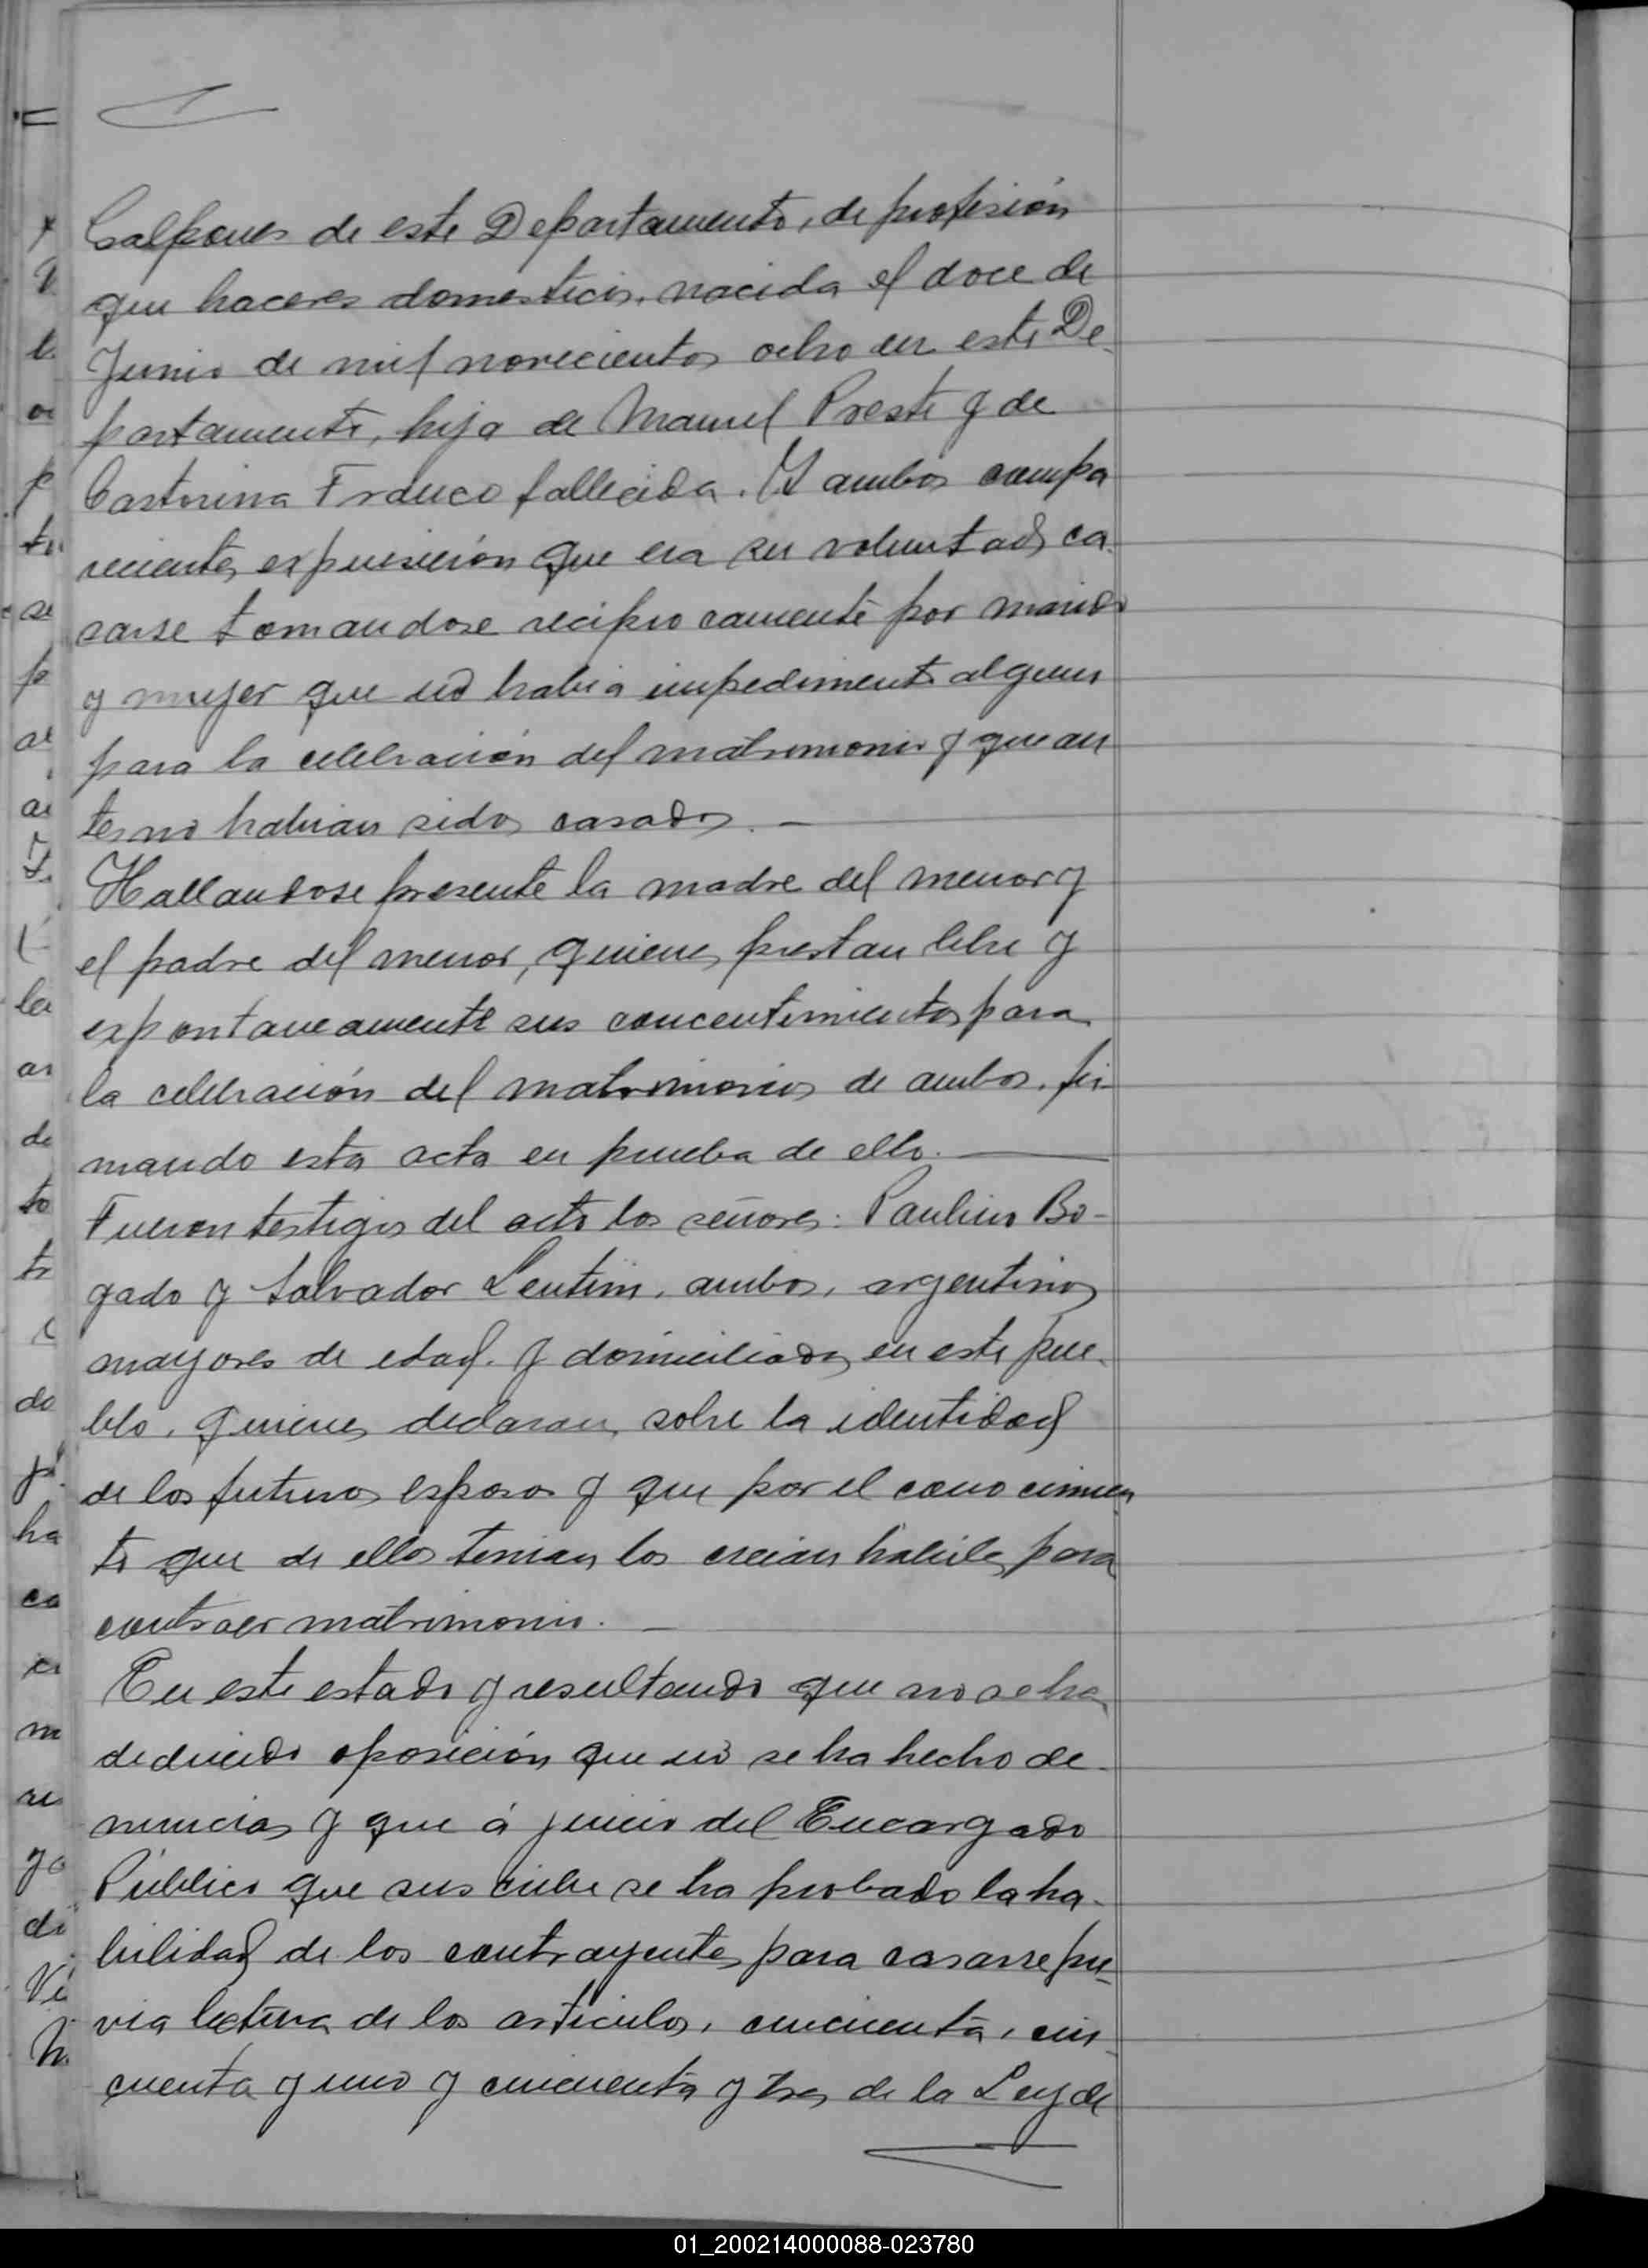 Galpones de este Departamento, de profesión
que haceres domesticos, nacida el doce de
Junio de mil novecientos ocho en este De-
partamento, hija de Manuel Preste y de
Castorina Franco fallecida. Y ambos compa
recientes expusieron que era su voluntad ca-
sarse tomandose reciprocamente por marido
y mujer que no habia impedimento alguno
para la celebración del matrimonio y que an
tes no habian sidos casados. —
Hallandose presente la madre del menor y
el padre del menor, quienes prestan libre y
expontaneamente sus concentimientos para
la celebración del matrimonios de ambos, fir-
mando esta acta en prueba de ello. —
Fueron testigos del acto los señores: Paulino Bo-
gado y Salvador Lentini, ambos, argentinos
mayores de edad. y domiciliados en este pue-
blo, quienes declaran, sobre la identidad
de los futuros esposos y que por el conocimien
to que de ellos tenian los creian habiles para
contraer matrimonio. —
En este estado y resultando que no se ha
deducido oposición que no se ha hecho de-
nuncias y que á juicio del Encargado
Público que suscribe se ha probado la ha-
bilidad de los contrayentes para casarse pre-
via lectura de los articulos, cincuenta, cin-
cuenta y uno y cincuenta y tres de la Ley de
01_200214000088-023780